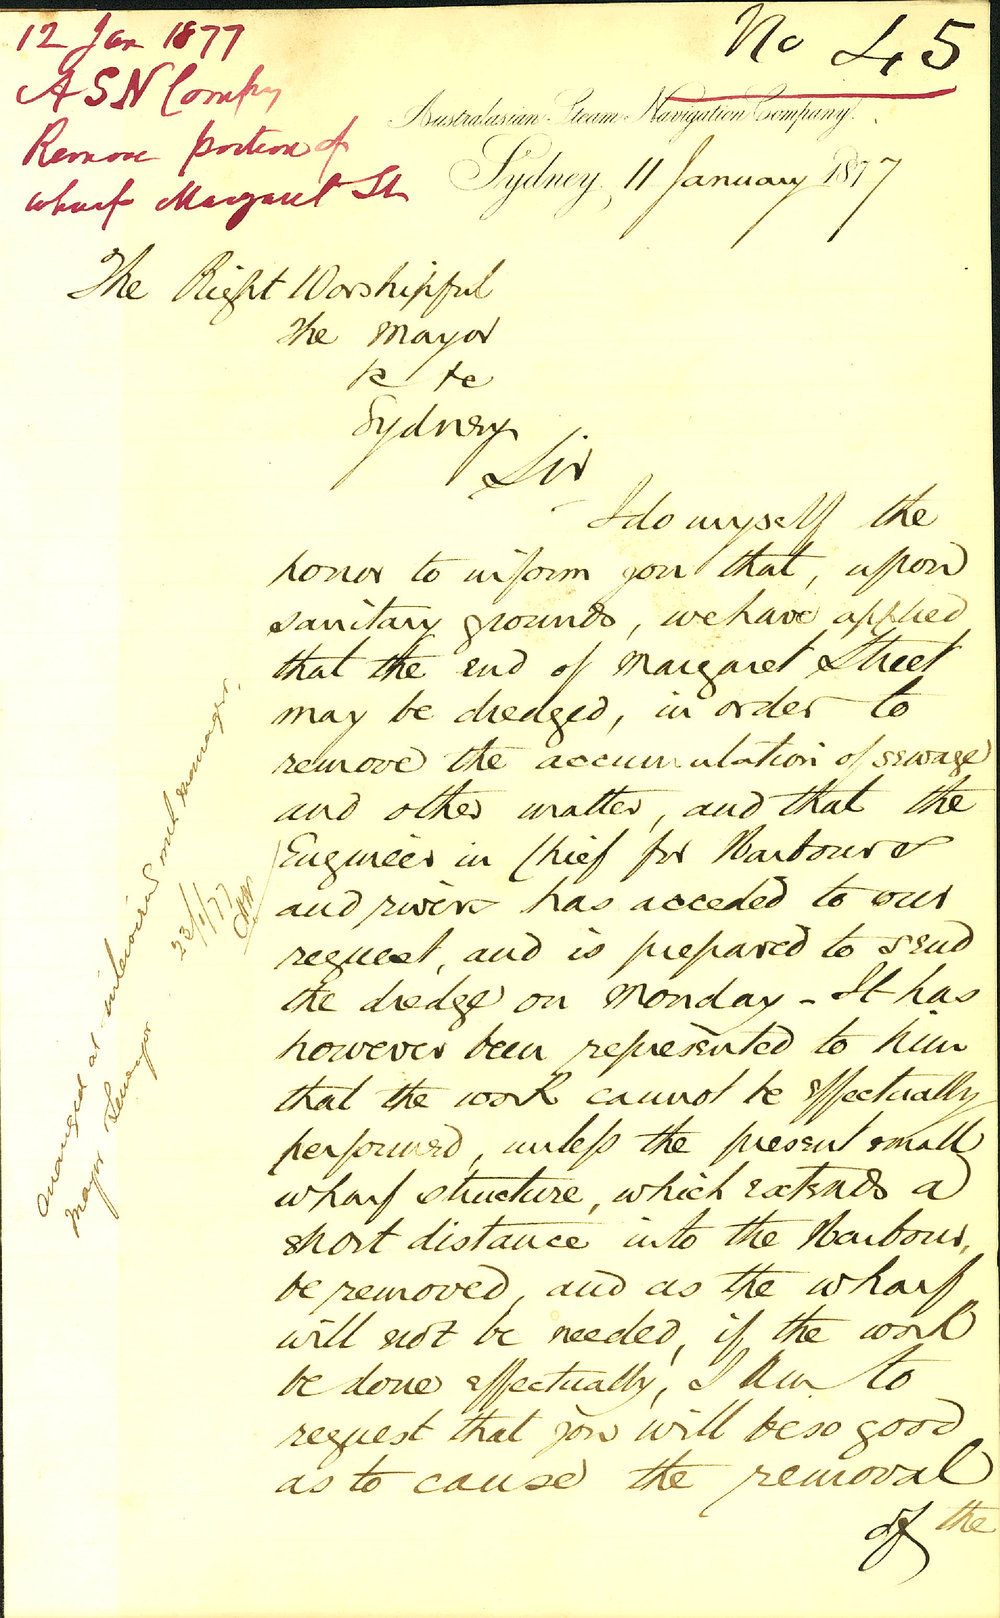 12 Jan 1877
ASN Compy
Remove portion of
wharf Margaret St
No 45
Australasian Steam Navigation Company.
Sydney, 11 January 1877
The Right Worshipful
The Mayor
&c &c
Sydney
Sir
I do myself the
honor to inform you that, upon
sanitary grounds, we have applied
that the end of Margaret Street
may be dredged, in order to
remove the accumulation of sewage
and other matter, and that the
Engineer in Chief for Harbours
and rivers has acceded to our
request, and is prepared to send
the dredge on Monday - It has
however been represented to him
that the work cannot be effectually
performed, unless the present small
wharf structure, which extends a
short distance into the Harbour,
be removed, and as the wharf
will not be needed, if the work
be done effectually, I am to
request that you will be so good
as to cause the removal
of the
arranged at interview with manager,
Mayor Surveyor
23/1/77